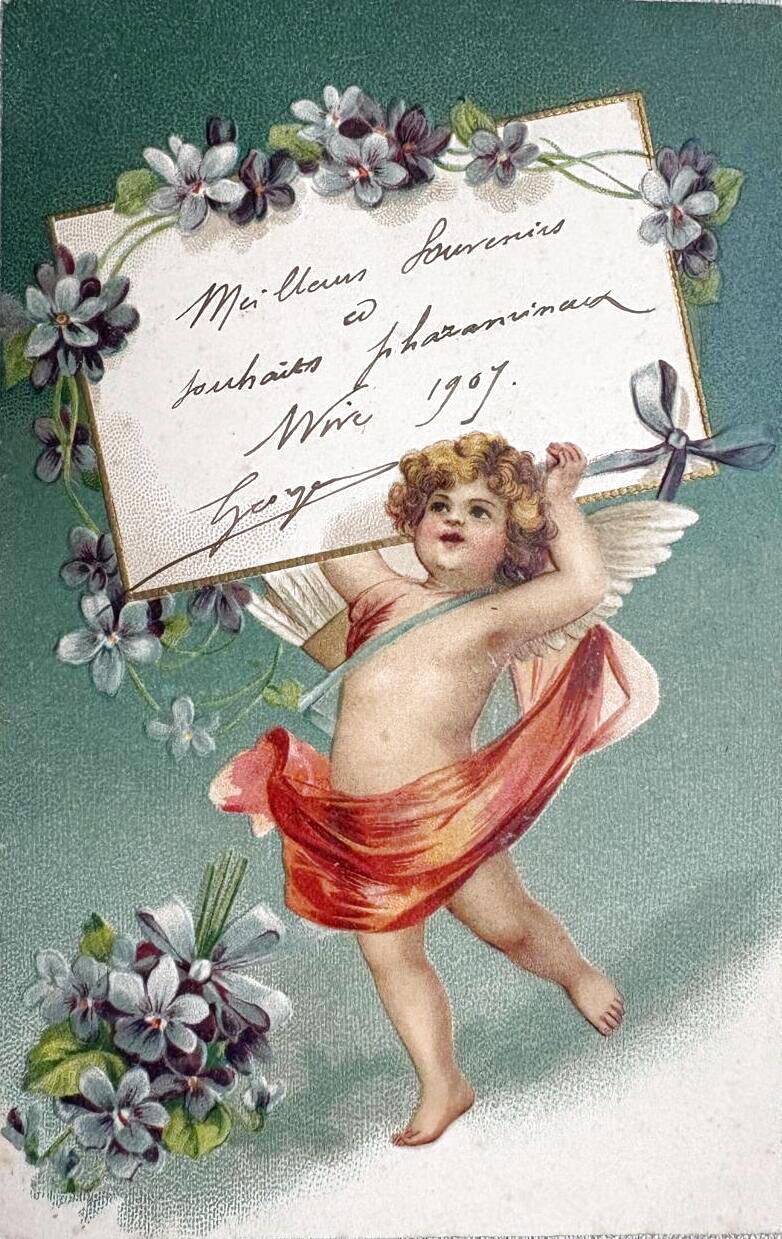 Meilleurs Souvenirs
et
souhaits pharamineux
Wire 1907.
Georges